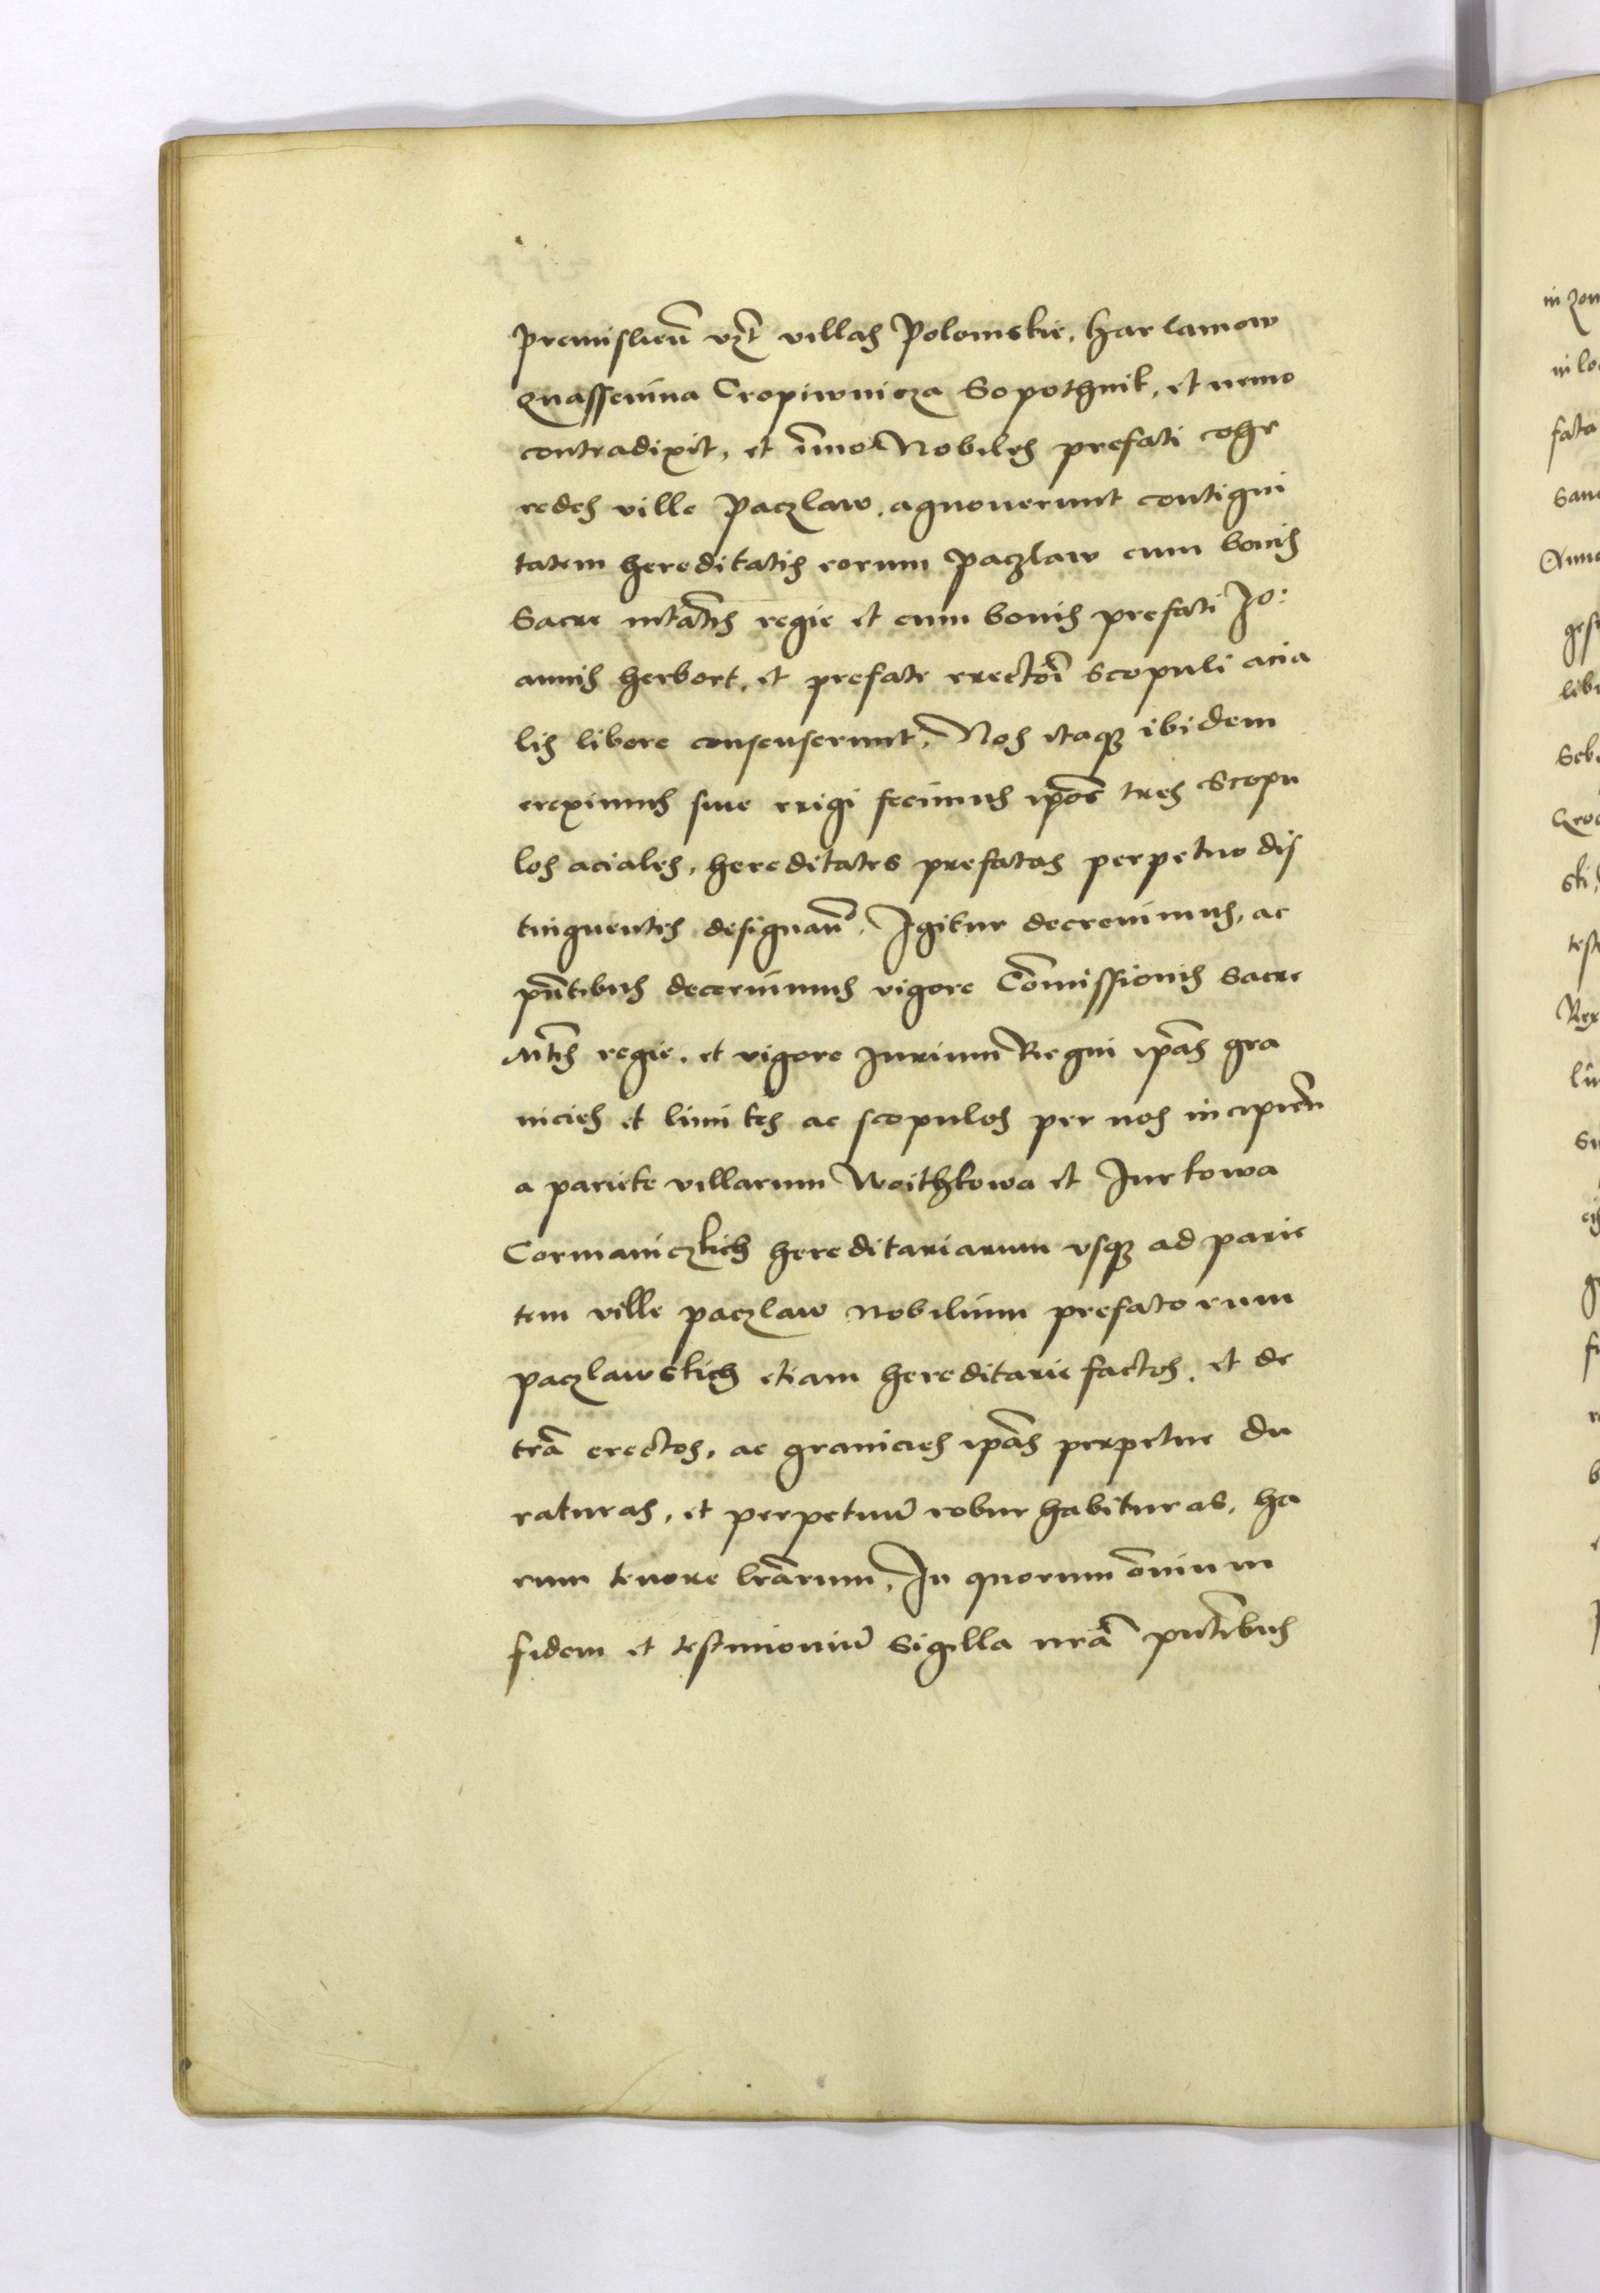 Premislien̄ vz̄t villas Polomskie, Harlamow
Quassenina Cropiwnicza Sopothnik, et nemo
contradixit, et im̄o Nobiles prefati cohe
redes ville Paczlaw, agnouerunt contigui
tatem hereditatis eorum Paczlaw cum bonis
Sacre mtātis regie et cum bonis prefati Jo:
annis herbort, et prefate erectōi Scopuli acia
lis libere consenserunt, Nos itaq̨ ibidem
ereximus siue erigi fecimus ip̄os tres Scopu
los aciales, hereditates prefatas perpetuo dis
tinguentes designan̄. Igitur decreuimus, ac
pn̄tibus decernimus vigore Com̄issionis Sacre
Mt̄is regie, et vigore Jurium Regni ip̄as gra
nicies et limites ac scopulos per nos incipien̄
a pariete villarum Woithkowa et Jurkowa
Cormaniczkich hereditariarum vsq̨ ad parie
tem ville paczlaw nobilium prefatorum
paczlawskich etiam hereditarie factos, et de
trā erectos, ac granicies ip̄as perpetue du
raturas, et perpetuū robur habituras, ha
rum tenore lrārum, In quorum om̄ium
fidem et testimoniū Sigilla nrā pn̄tibus